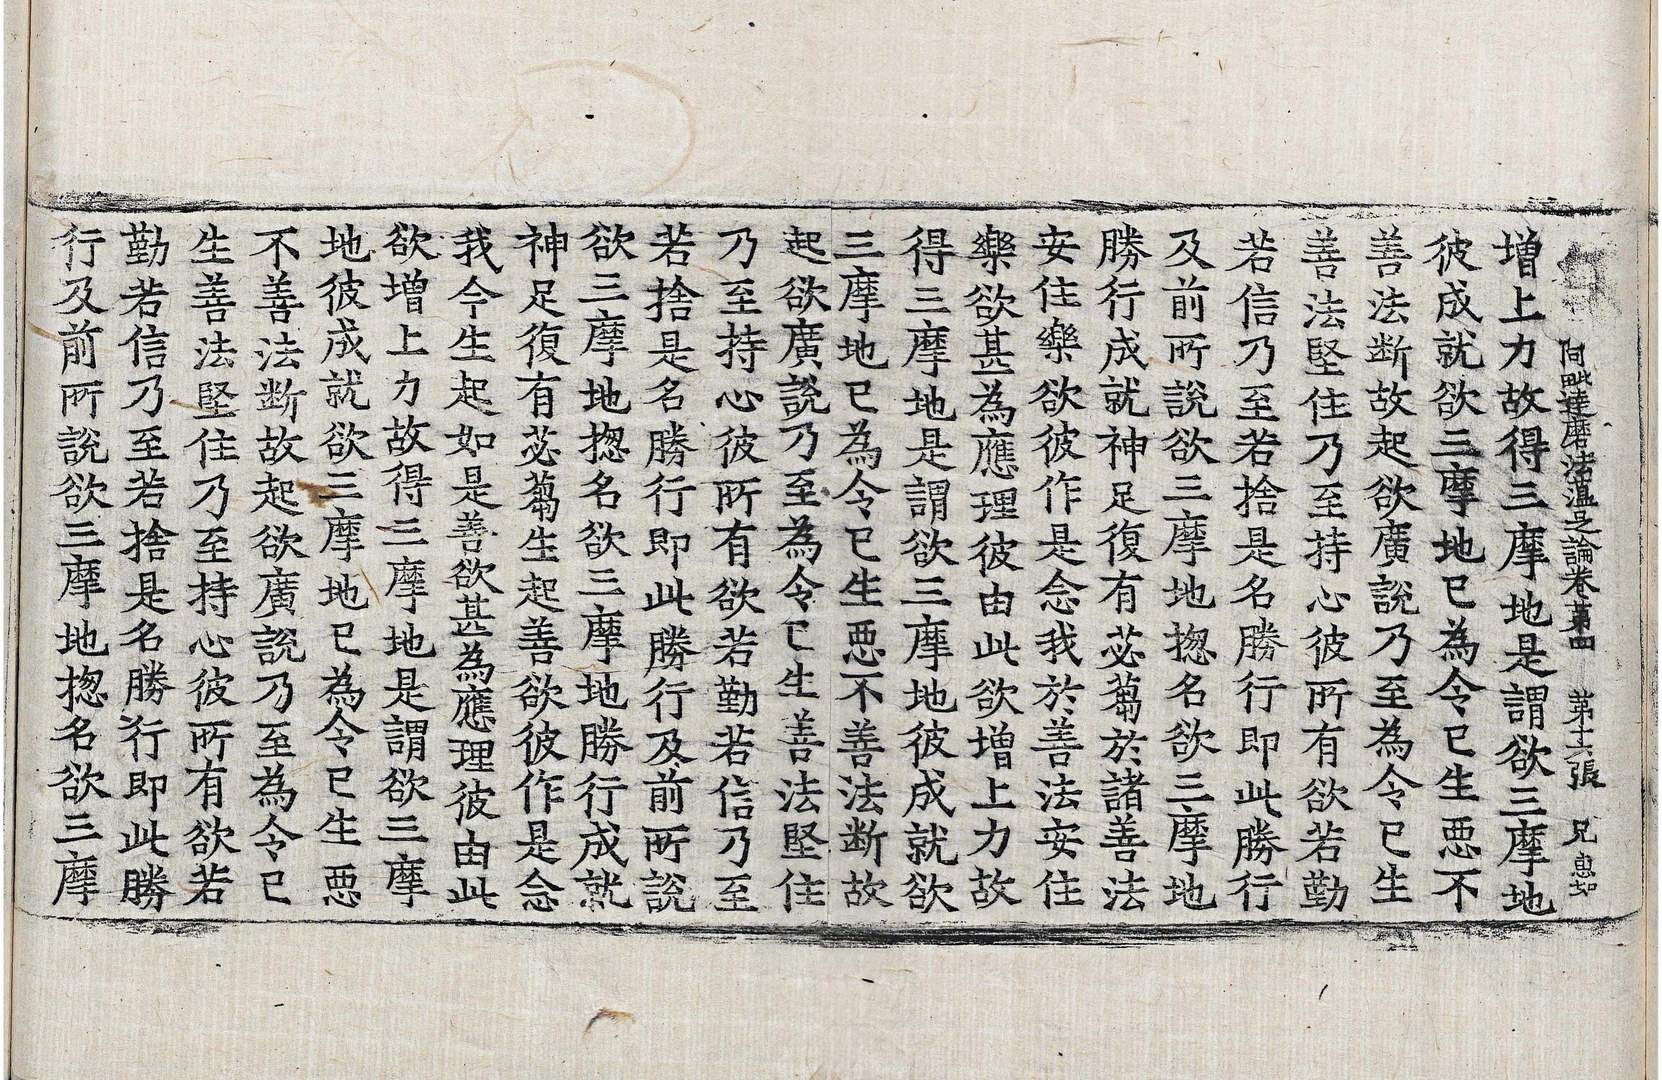 阿毗達磨法蘊足論卷第四 第十六張 兄
增上力故得三摩地是謂欲三摩地
彼成就欲三摩地已為令已生惡不
善法断故起欲廣說乃至為令已生
善法堅住乃至持心彼所有欲若勤
若信乃至若捨是名勝行即此勝行
及前所說欲三摩地揔名欲三摩地
勝行成就神足復有苾芻於諸善法
安住樂欲彼作是念我於善法安住
樂欲甚為應理彼由此欲增上力故
得三摩地是謂欲三摩地彼成就欲
三摩地已為令已生惡不善法断故
起欲廣說乃至為令已生善法堅住
乃至持心彼所有欲若勤若信乃至
若捨是名勝行即此勝行及前所說
欲三摩地揔名欲三摩地勝行成就
神足復有苾芻生起善欲彼作是念
我今生起如是善欲甚為應理彼由此
欲增上力故得三摩地是謂欲三摩
地彼成就欲三摩地已為令已生惡
不善法断故起欲廣說乃至為令已
生善法堅住乃至持心彼所有欲若
勤若信乃至若捨是名勝行即此勝
行及前所說欲三摩地揔名欲三摩